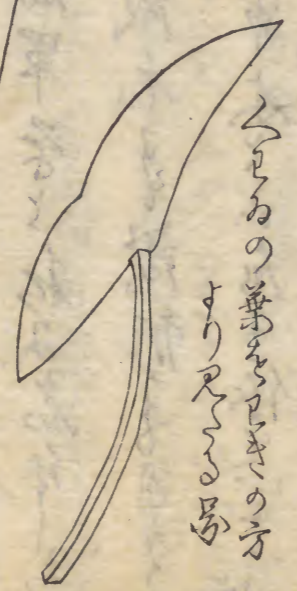 くわゐの葉をわきの方
より見たる図